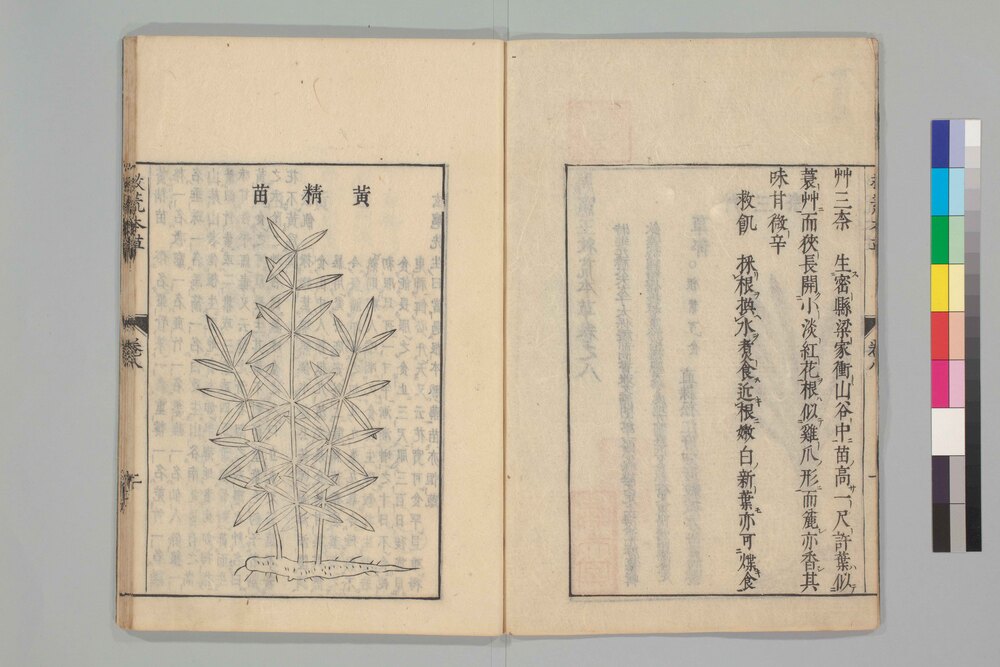 艸三柰 生密縣梁家衝山谷中苗高一尺許葉似
蓑艸而狹長開小淡紅花根似雞爪形而麄亦香其
味甘微辛
救飢 採根換水煮食近根嫩白新葉亦可煠食
黃精苗
卷八